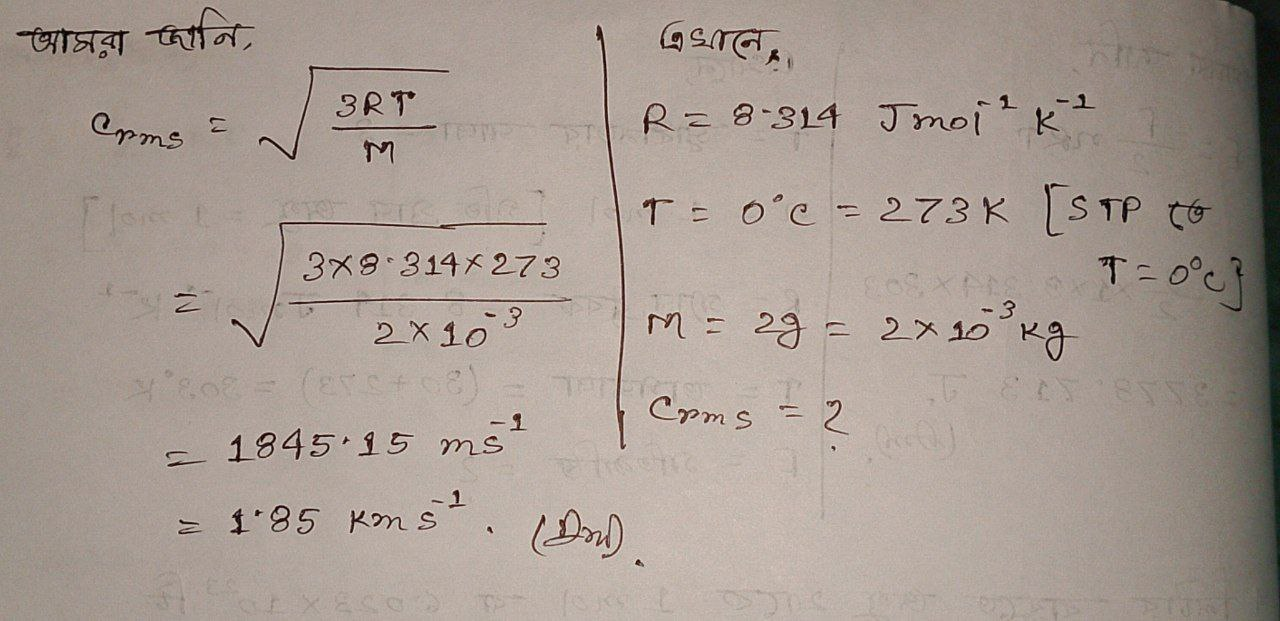 আমরা জানি,
Crms = √(3RT/M)
= √(3×8.314×273 / 2×10⁻³)
= 1845.15 ms⁻¹
= 1.85 Kms⁻¹. (Ans).
এখানে,
R = 8.314 Jmol⁻¹ K⁻¹
T = 0°C = 273K [STP তে
T = 0°C]
M = 2g = 2×10⁻³ Kg
Crms = ?